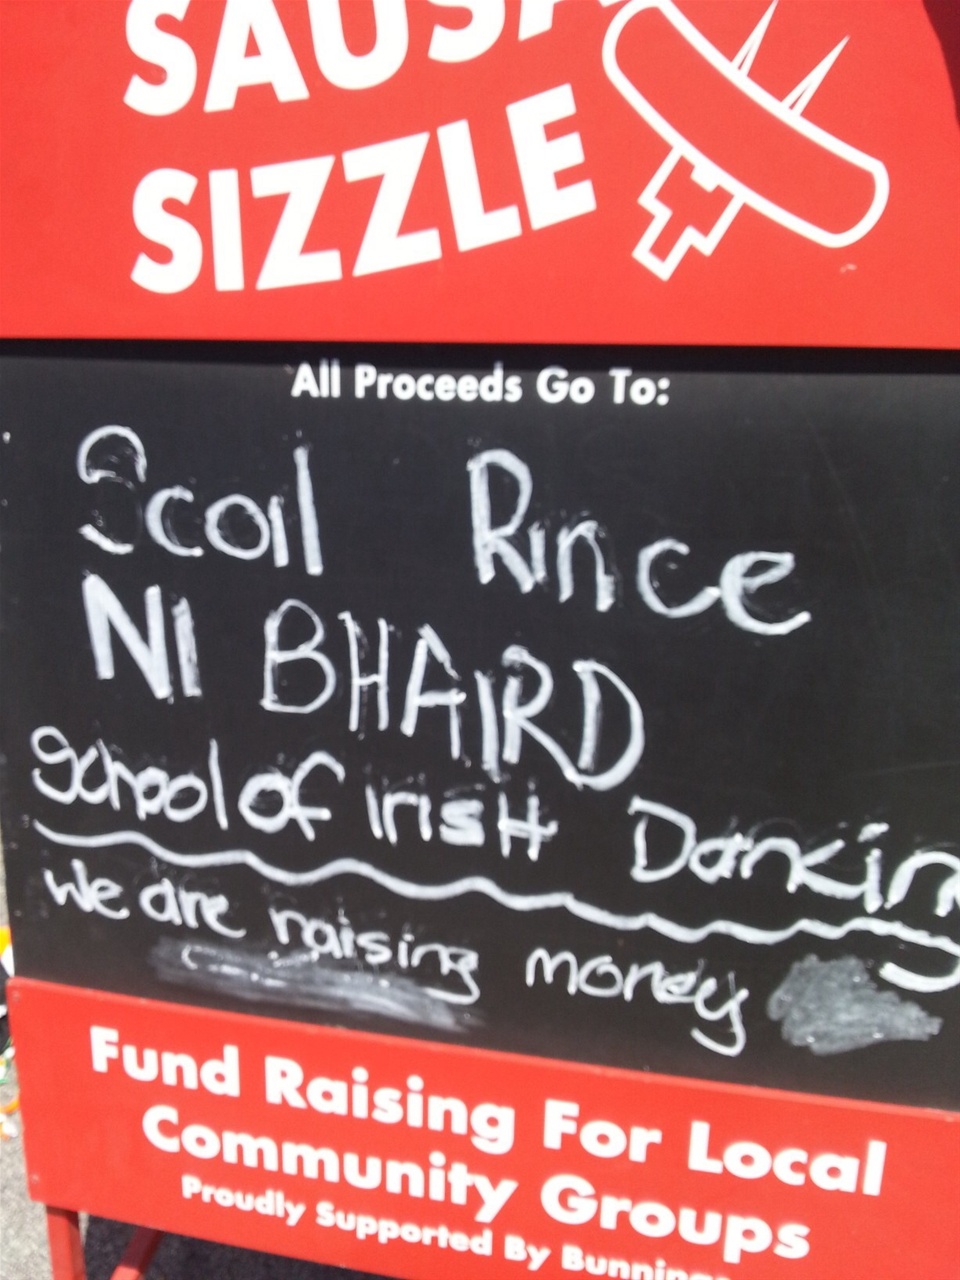 SAUSA
SIZZLE
All Proceeds Go To:
Scoil Rince
NI BHAIRD
School of IrisH Dancing
We are raising money
Fund Raising For Local
Community Groups
Proudly Supported By Bunnings